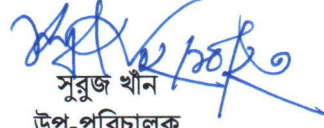 সুরুজ খাঁন
উপ-পরিচালক